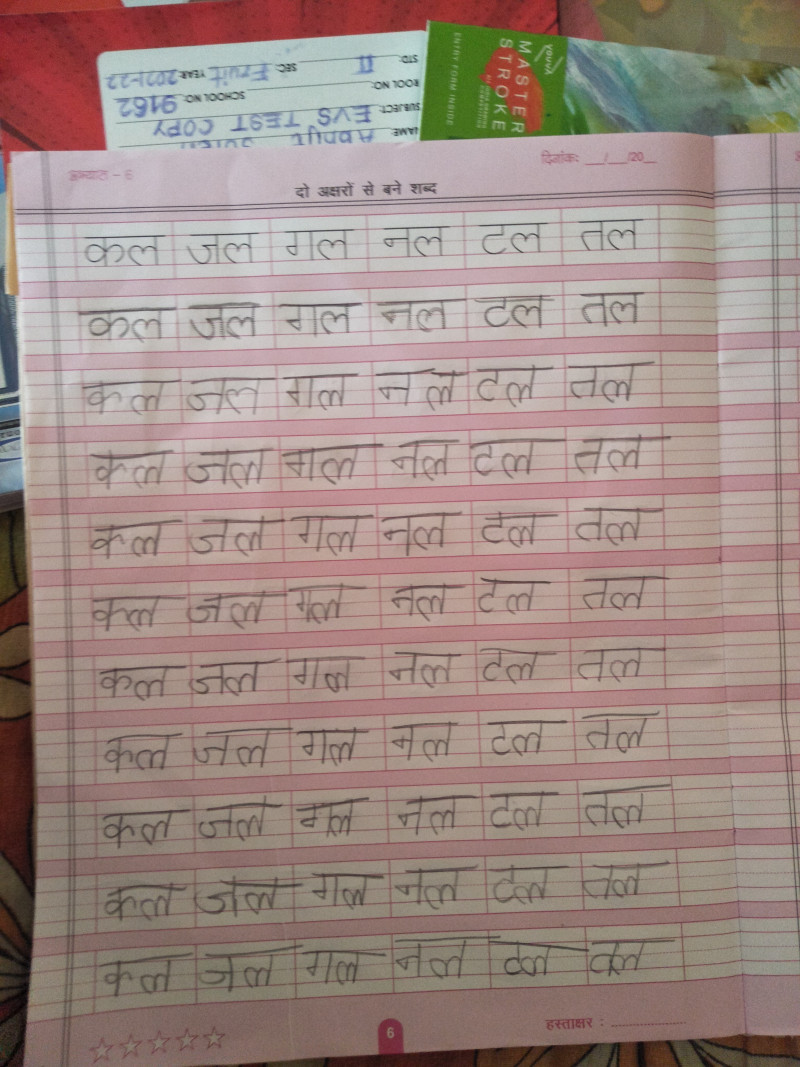 YOUVA
MASTER
STROKE
ENTRY FORM INSIDE
STD. II SEC. Fruit YEAR 2021-22
ROOL NO. SCHOOL NO. 9162
SUBJECT: EVS TEST COPY
NAME:
अभ्यास - 6
दिनांकः __/__/20__
दो अक्षरों से बने शब्द
कल जल गल नल टल तल
कल जल गल नल टल तल
कल जल गल नल टल तल
कल जल गल नल टल तल
कल जल गल नल टल तल
कल जल गल नल टल तल
कल जल गल नल टल तल
कल जल गल नल टल तल
कल जल गल नल टल तल
कल जल गल नल टल तल
कल जल गल नल टल तल
6
हस्ताक्षर : ....................